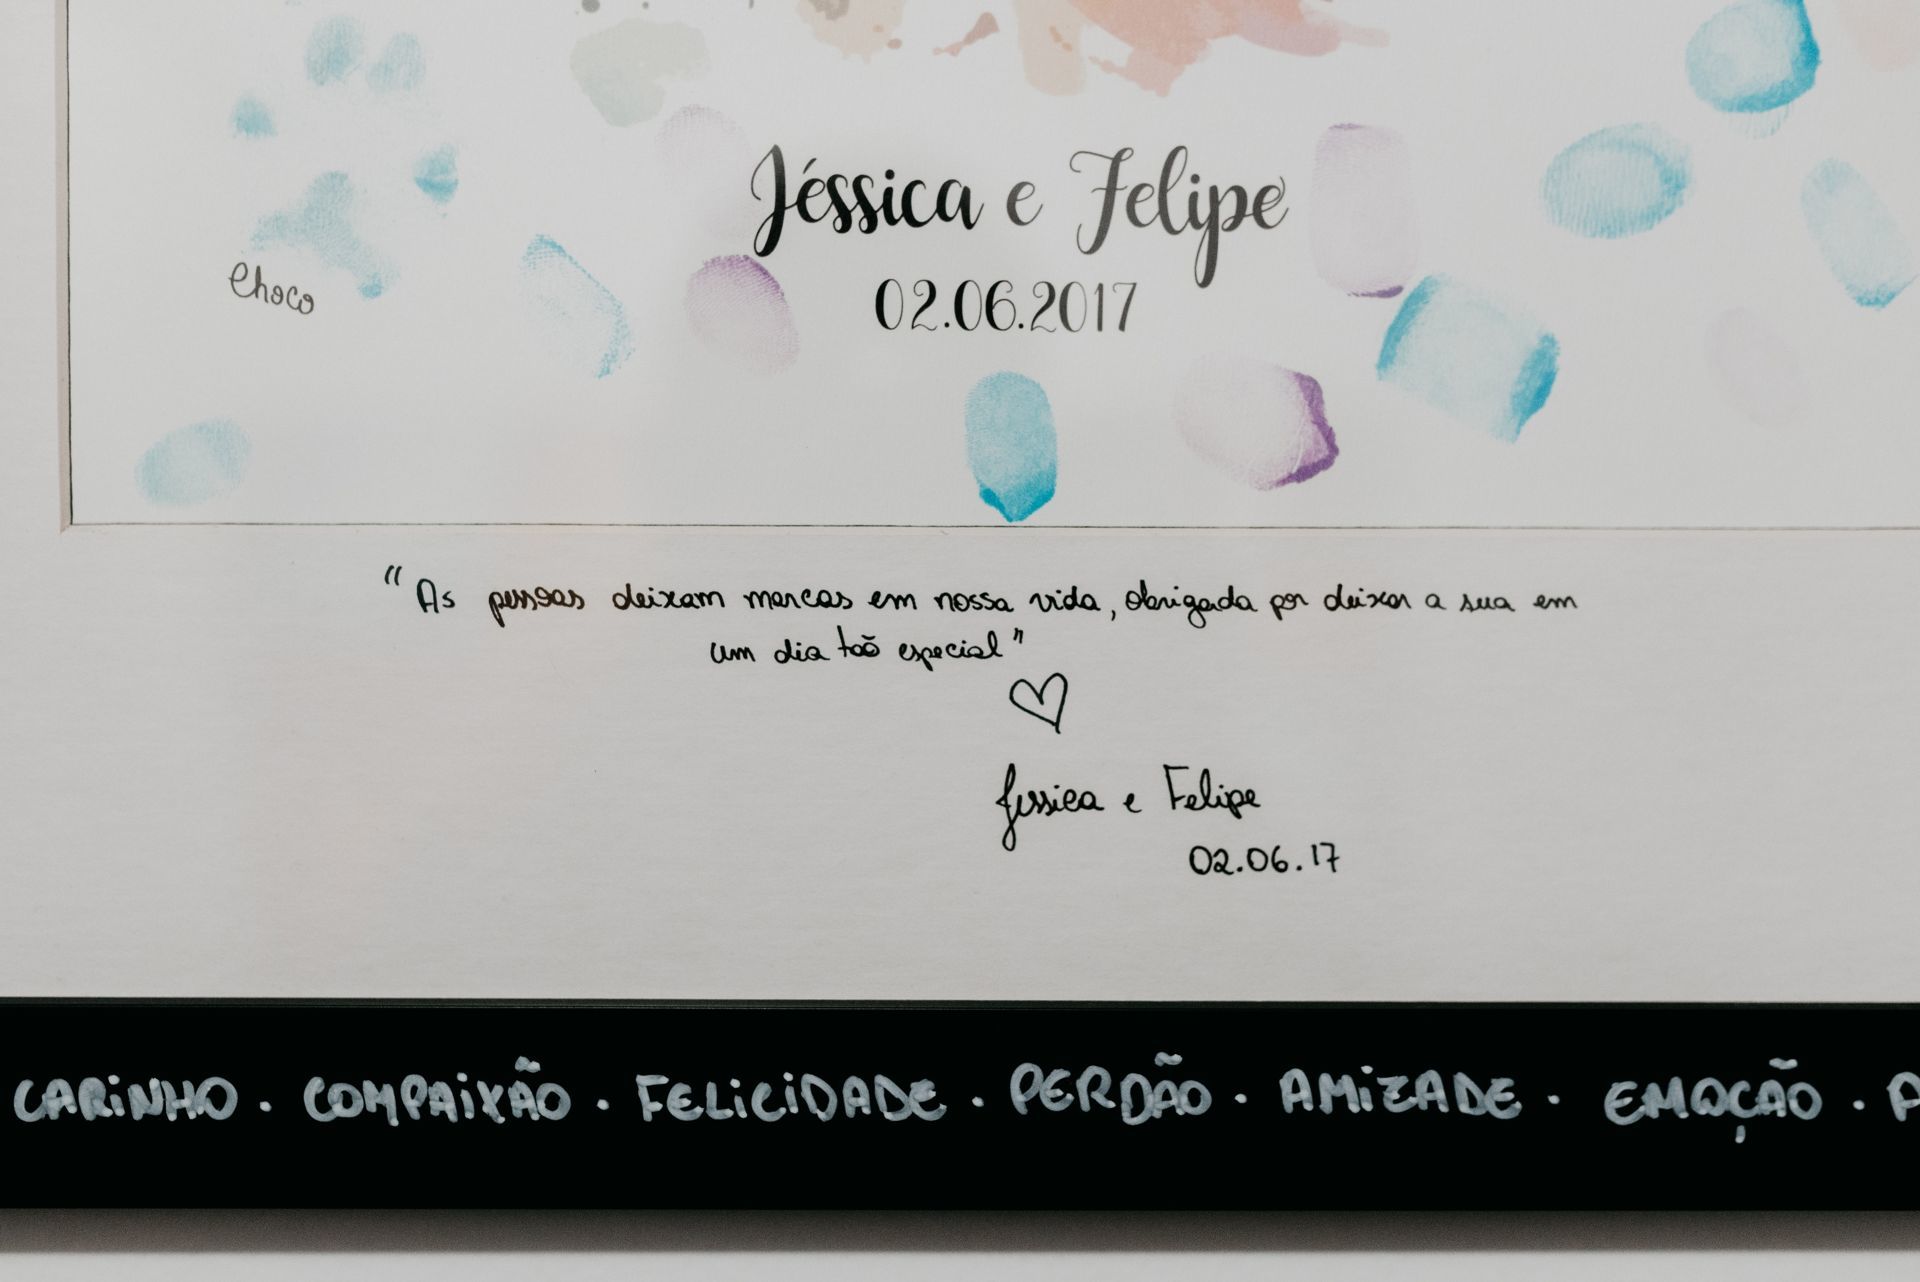 Jéssica e Felipe
02.06.2017
Choco
"As pessoas deixam marcas em nossa vida, obrigada por deixar a sua em
um dia tão especial"
Jessica e Felipe
02.06.17
CARINHO . COMPAIXÃO . FELICIDADE . PERDÃO . AMIZADE . EMOÇÃO .